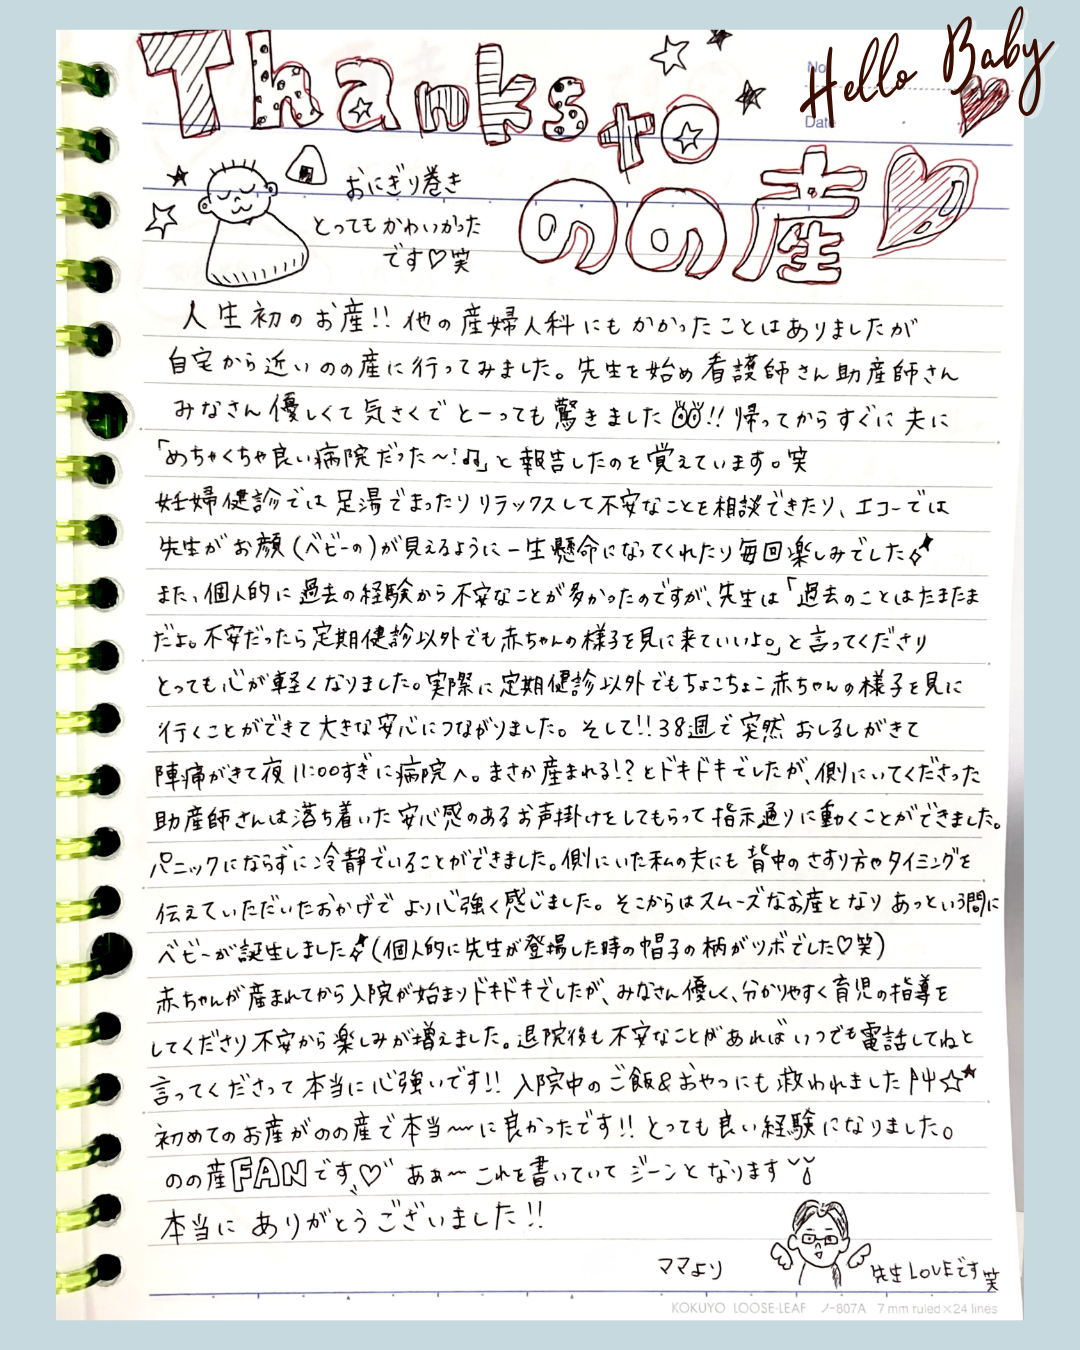 Hello Baby
No.
Date
Thanks to
のの産
おにぎり巻き
とってもかわいかった
です♡笑
人生初のお産!! 他の産婦人科にもかかったことはありましたが
自宅から近いのの産に行ってみました。先生を始め看護師さん助産師さん
みなさん優しくて気さくでとーっても驚きました!! 帰ってからすぐに夫に
「めちゃくちゃ良い病院だった〜!♫」と報告したのを覚えています。笑
妊婦健診では足湯でまったりリラックスして不安なことを相談できたり、エコーでは
先生がお顔(ベビーの)が見えるように一生懸命になってくれたり毎回楽しみでした
また、個人的に過去の経験から不安なことが多かったのですが、先生は「過去のことはたまたま
だよ。不安だったら定期健診以外でも赤ちゃんの様子を見に来ていいよ。」と言ってくださり
とっても心が軽くなりました。実際に定期健診以外でもちょこちょこ赤ちゃんの様子を見に
行くことができて大きな安心につながりました。そして!! 38週で突然おしるしがきて
陣痛がきて夜11:00すぎに病院へ。まさか産まれる!?とドキドキでしたが、側にいてくださった
助産師さんは落ち着いた安心感のあるお声掛けをしてもらって指示通りに動くことができました。
パニックにならずに冷静でいることができました。側にいた私の夫にも背中のさすり方やタイミングを
伝えていただいたおかげでより心強く感じました。そこからはスムーズなお産となりあっという間に
ベビーが誕生しました(個人的に先生が登場した時の帽子の柄がツボでした♡笑)
赤ちゃんが産まれてから入院が始まりドキドキでしたが、みなさん優しく、分かりやすく育児の指導を
してくださり不安から楽しみが増えました。退院後も不安なことがあればいつでも電話してねと
言ってくださって本当に心強いです!! 入院中のご飯&おやつにも救われました☆★
初めてのお産がのの産で本当〜に良かったです!! とっても良い経験になりました。
のの産FANです♡ あぁ〜これを書いていてジーンとなります
本当にありがとうございました!!
ママより
先生LOVEです笑
KOKUYO LOOSE-LEAF ノ-807A 7 mm ruled×24 lines